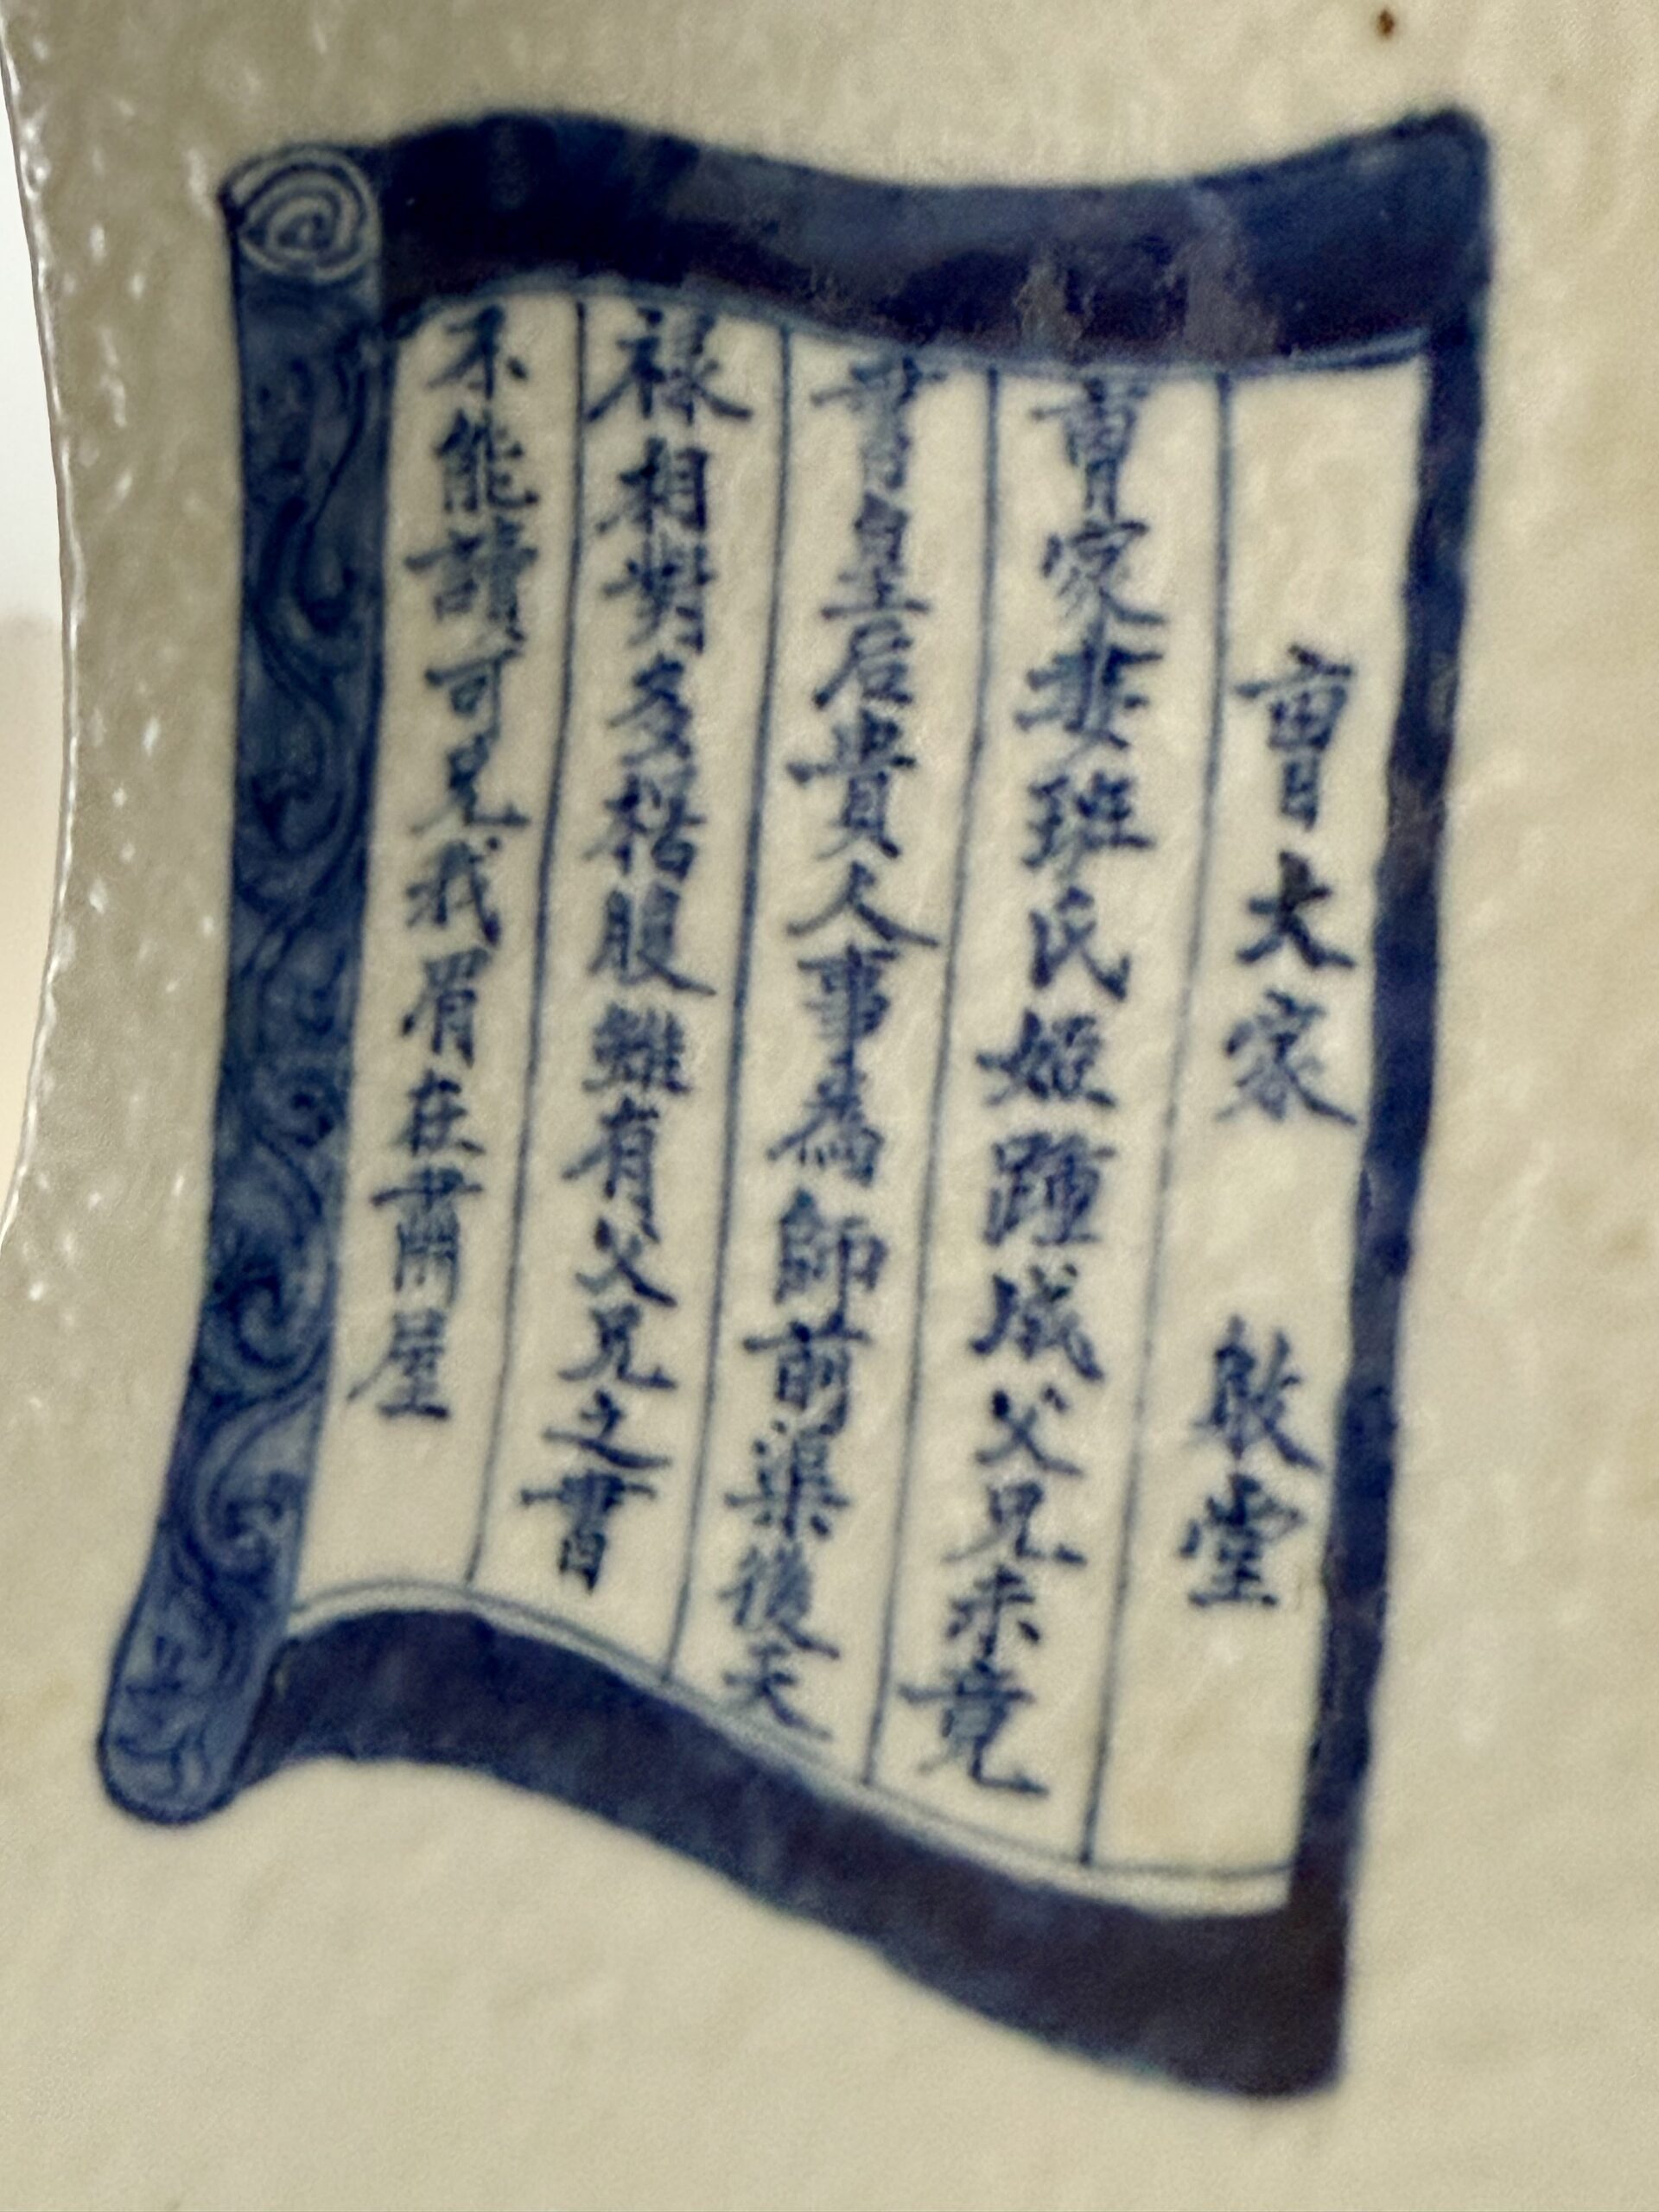 曹大家 敢堂
曹家妻班氏姬踵成父兄未竟
書皇后貴人事為師前渠後天
祿相對多楷腹雖有父兄之書
不能讀可見我眉在書閣屋